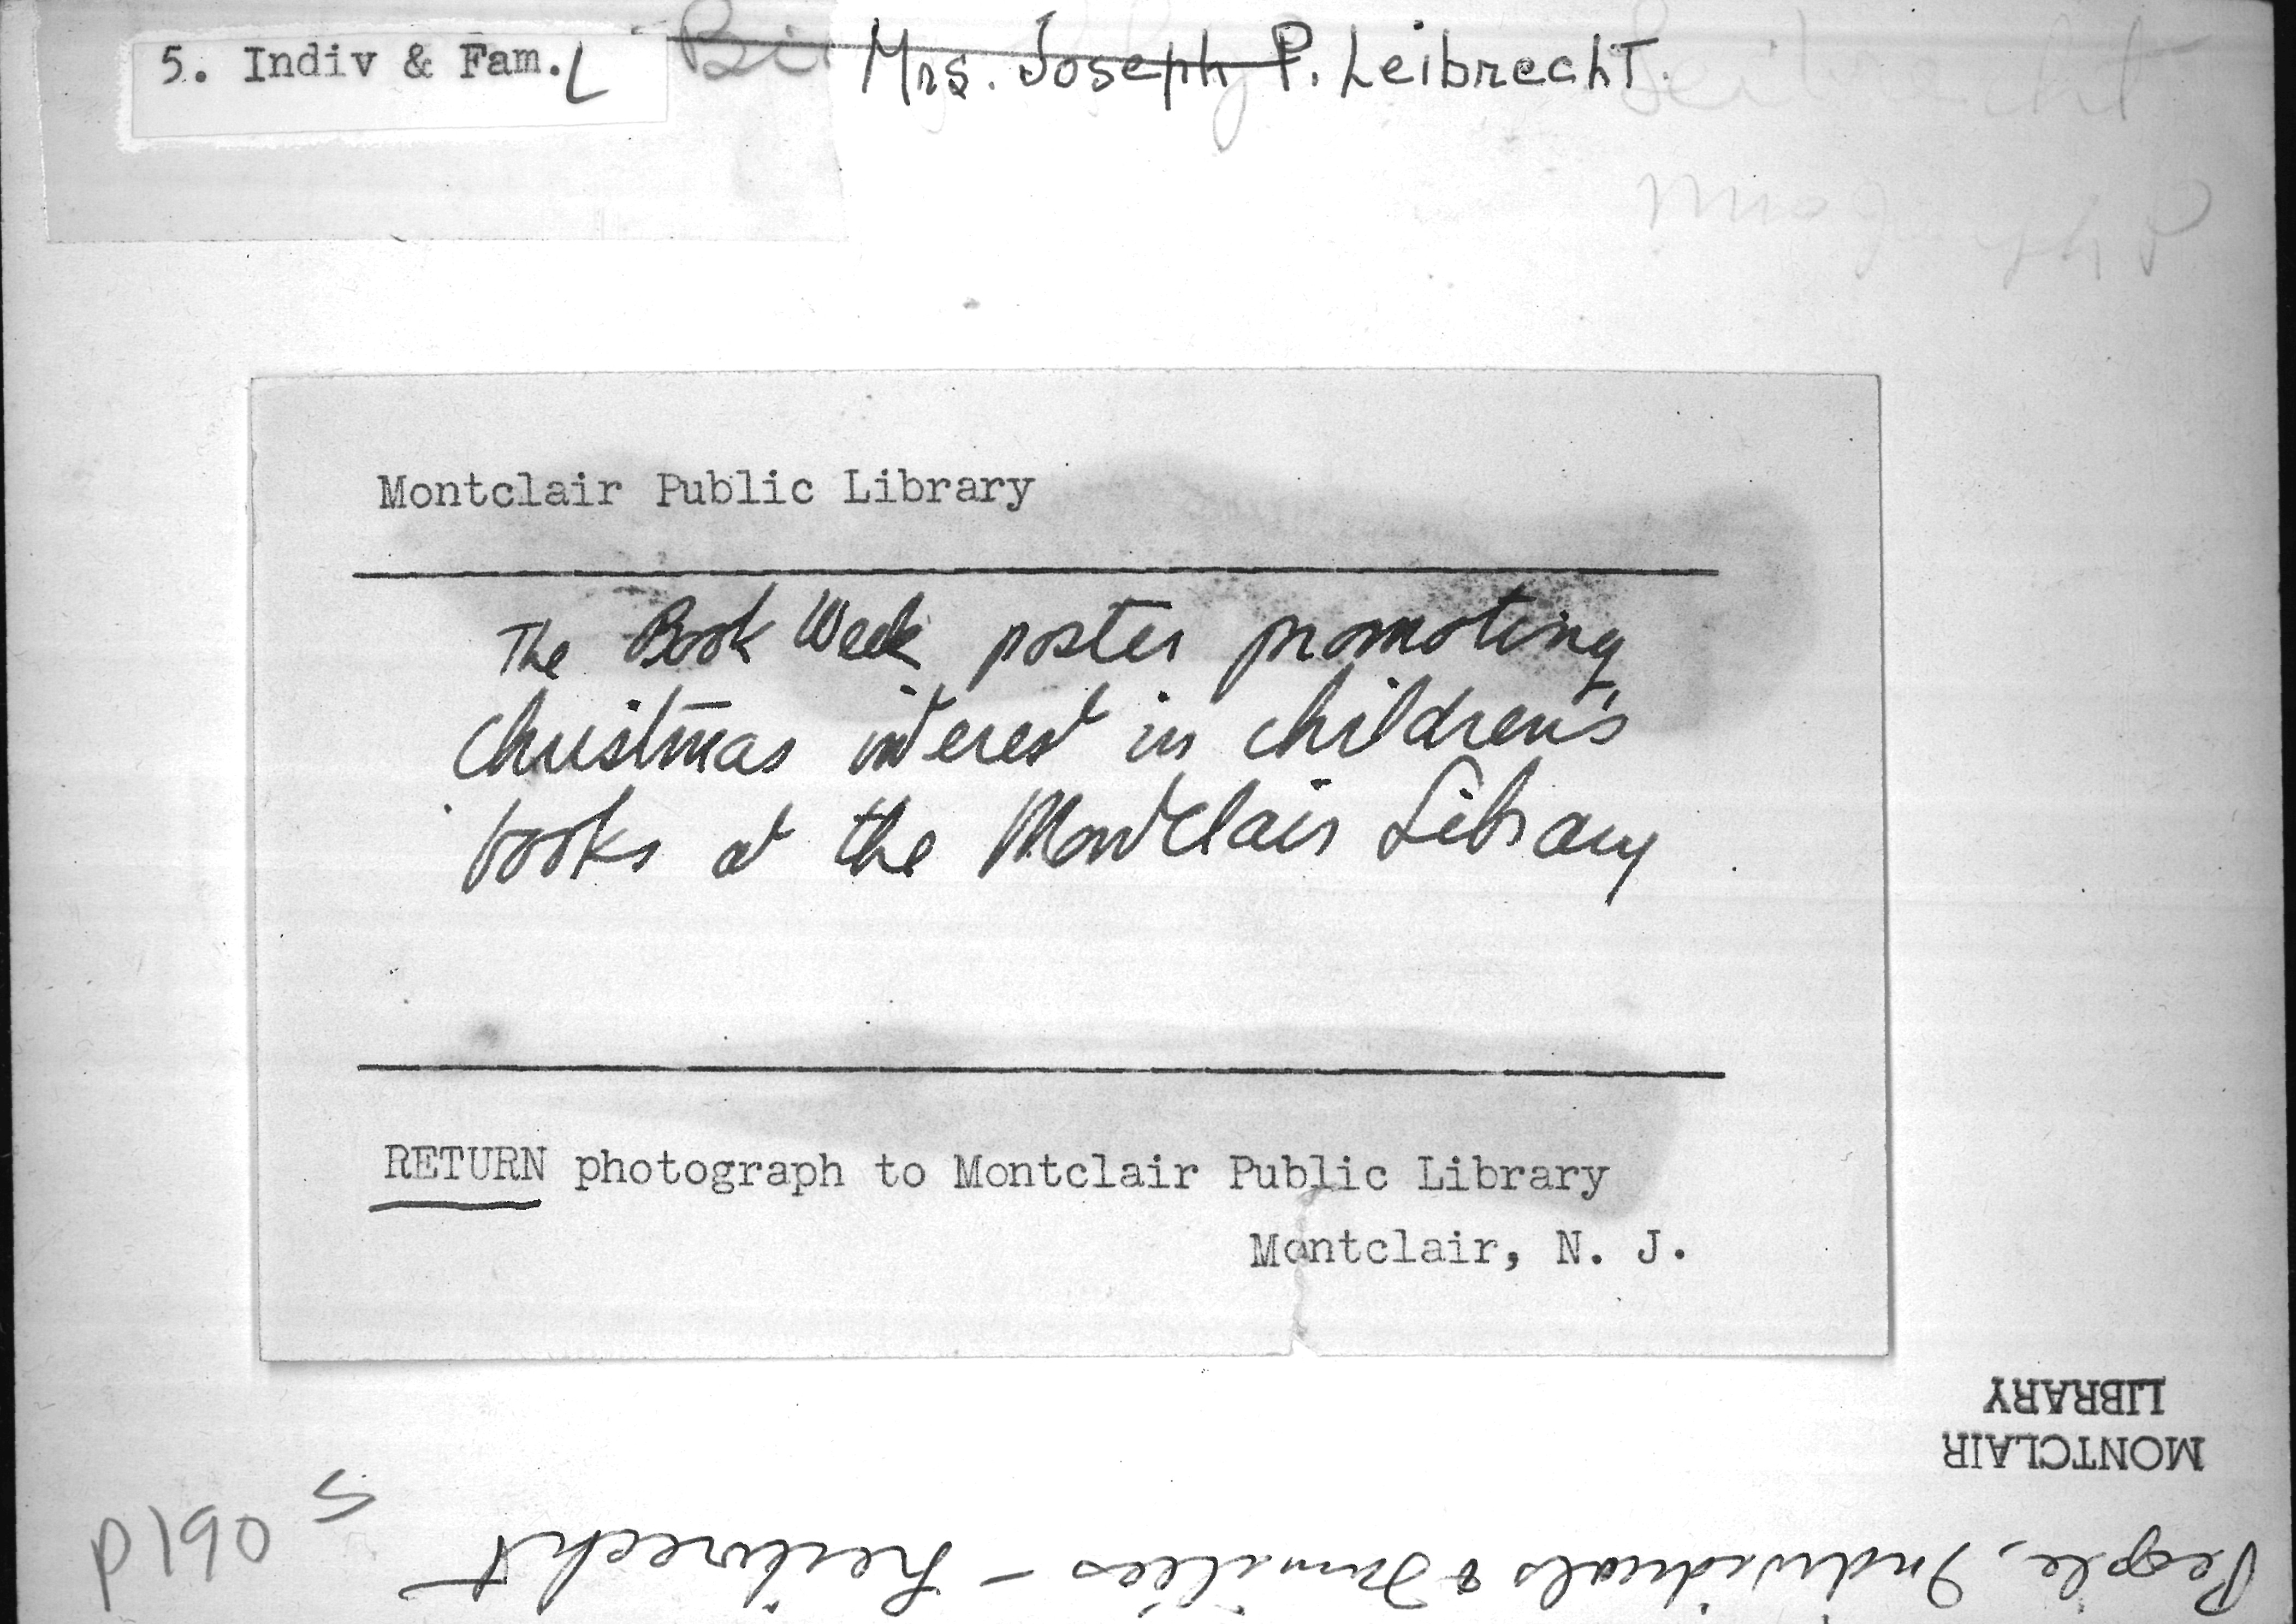 5. Indiv & Fam. L Mrs. Joseph P. Leibrecht.
Leibrecht
Montclair Public Library
The Book Week poster promoting
Christmas interest in children's
books at the Montclair Library
RETURN photograph to Montclair Public Library
Montclair, N. J.
MONTCLAIR
LIBRARY
People, Individuals & Families - Leibrecht
P190
5